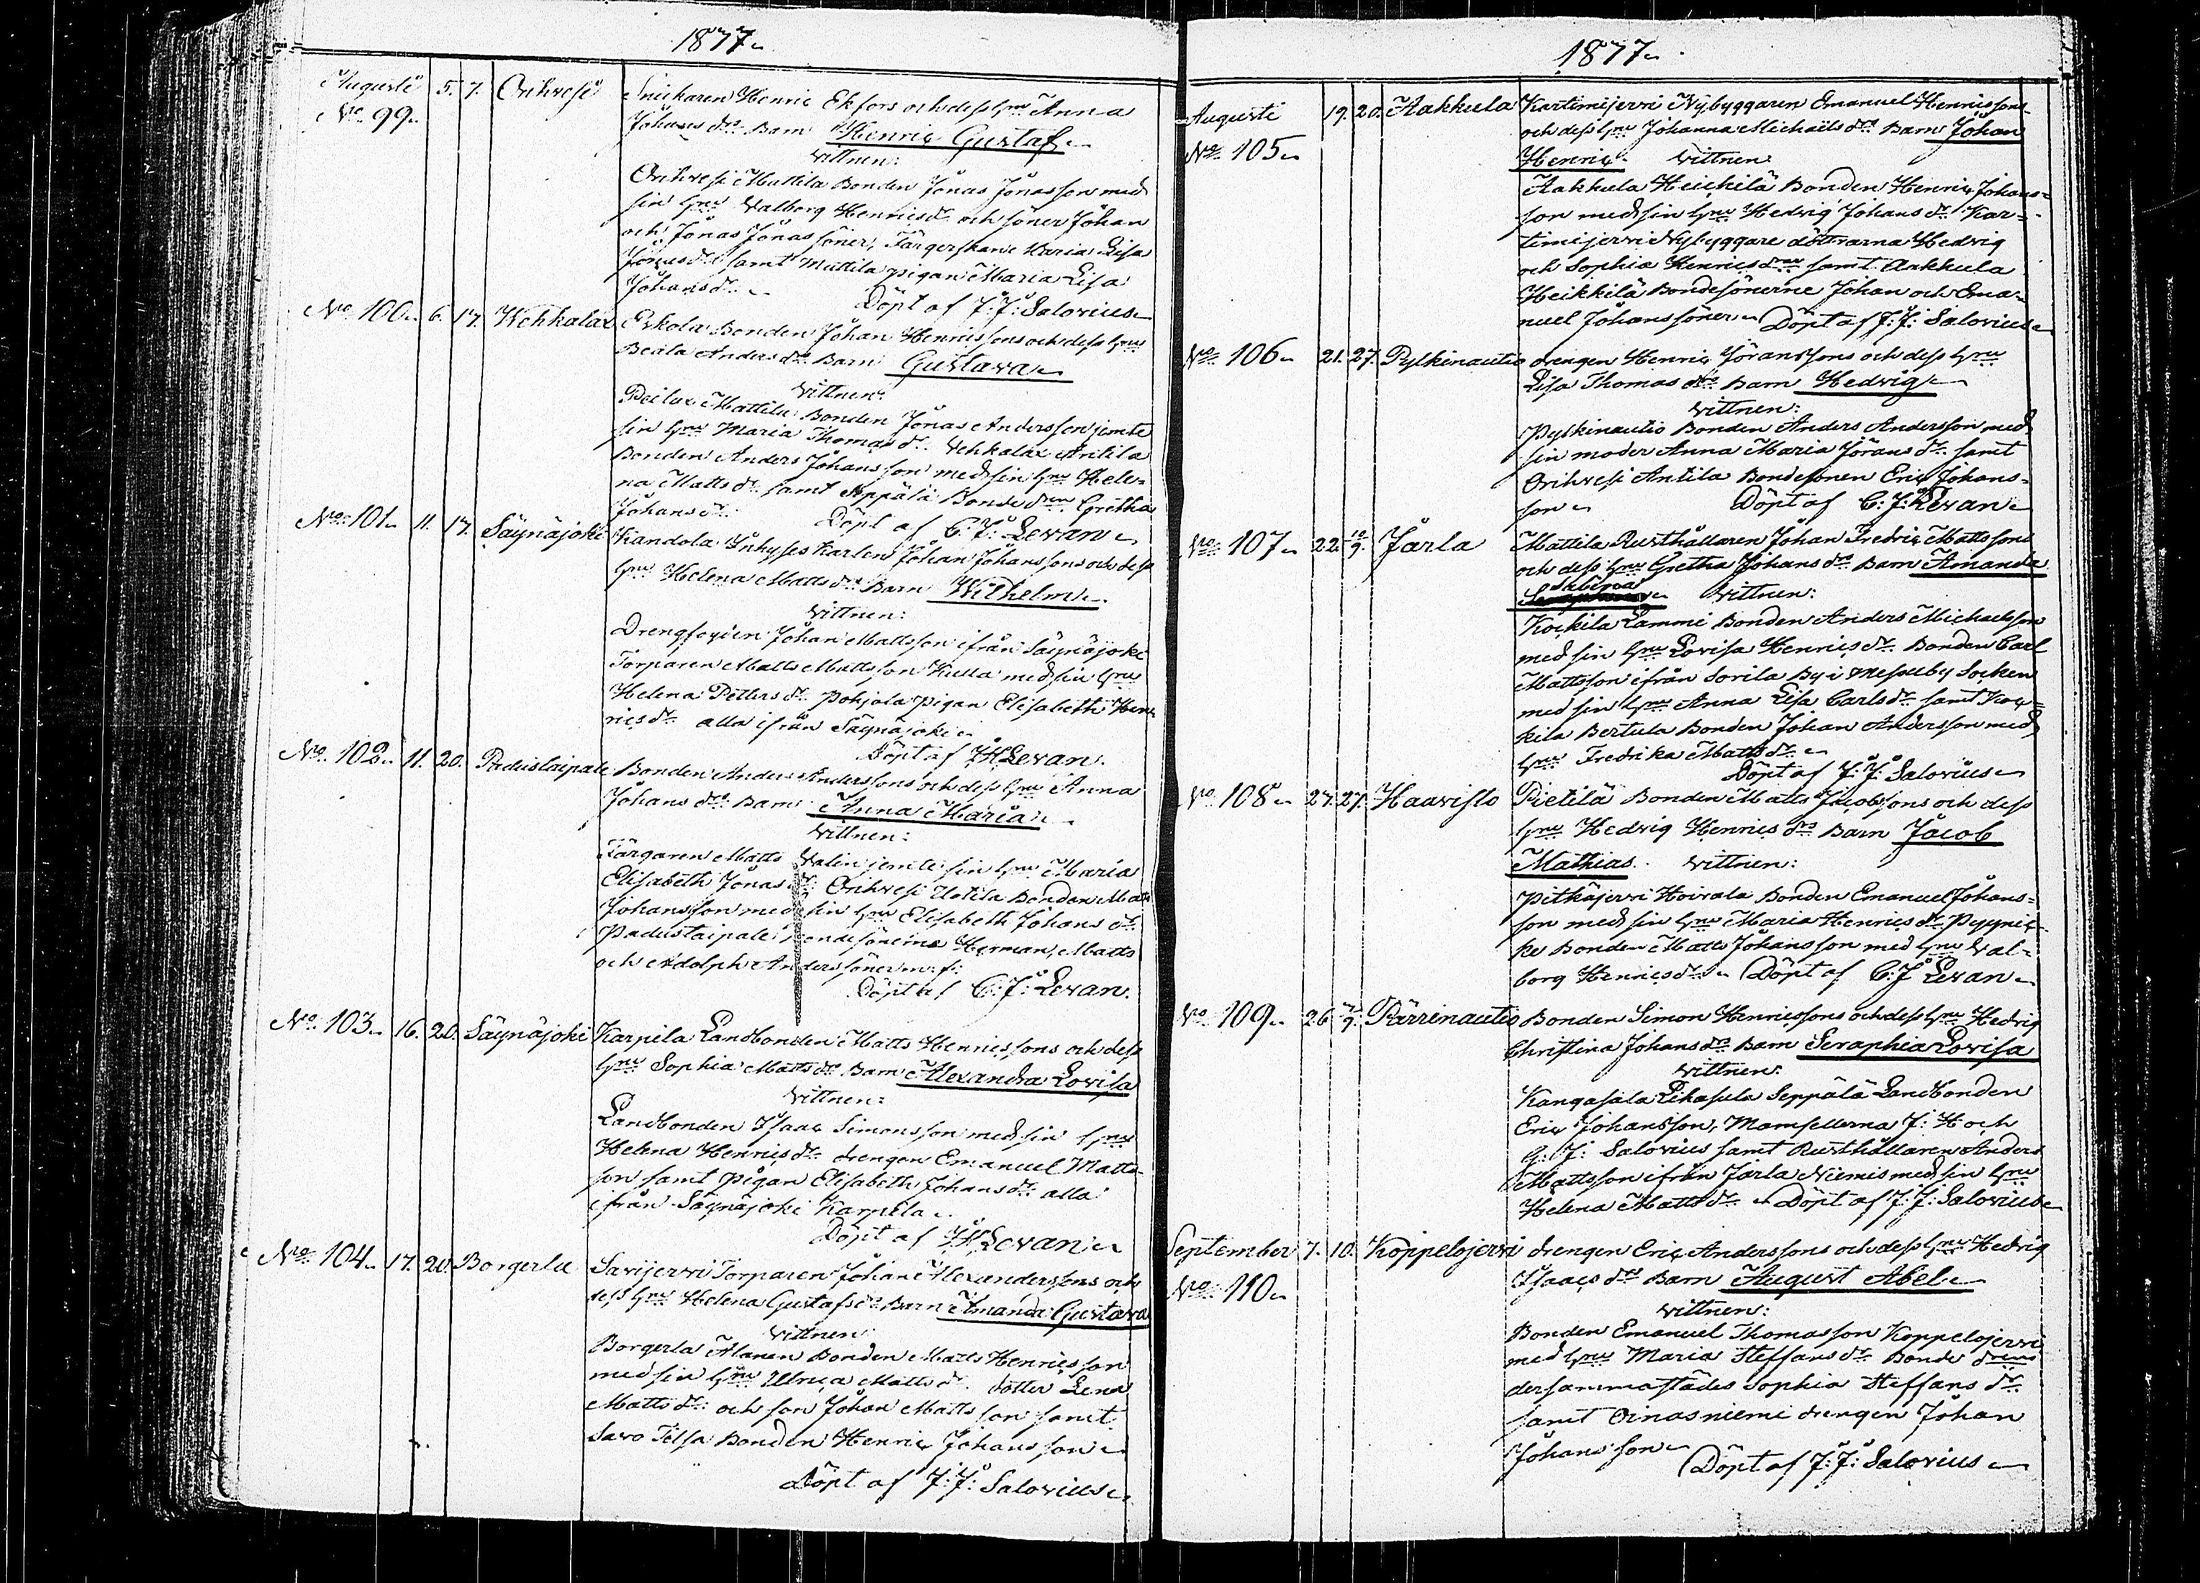 1877
Augusti
No 99
5. 7. Orihvesi
Snickaren Henric Ekfors och dess Hru Anna
Johans drs Barn Henric Gustaf
Vittnen:
Orihvesi Mattila Bonden Jonas Jonasson med
sin Hru Valborg Henricsdr och söner Johan
och Jonas Jonassöner, Färgerskan Maria Lisa
Jonasdr samt Mattila pigan Maria Lisa
Johansdr
Döpt af J: J: Salovius
No 100 6. 17. Wehkalax
Eskola Bonden Johan Henricssons och dess Hru
Beata Anders drs Barn Gustava
Vittnen:
Mattila Bonden Jonas Andersson jemte
sin Hru Maria Thomas dr Vehkalax Antila
Bonden Anders Johansson med sin Hru Hele-
na Matts dr samt Seppälä Bonde dren Gretha
Johans dr
Döpt af C: J: Levan
No 101 11. 17. Säynäjoki
Kandola Inhyses Karlen Johan Johanssons och dess
Hru Helena Matts drs Barn Wilhelm
Vittnen:
Drengfogden Johan Mattsson ifrån Säynäjoki
Torparen Matts Mattsson Kulla med sin Hru
Helena Petters dr Pohjola pigan Elisabeth Hen-
rics dr alla ifrån Säynäjoki
Döpt af J H Levan
No 102 11. 20. Padustaipale
Bonden Anders Anderssons och dess Hru Anna
Johans drs Barn Anna Maria
Vittnen:
Färgaren Matts Valin jemte sin Hru Maria
Elisabeth Jonas dr Orihvesi Uotila Bonden Matts
Johansson med sin Hru Elisabeth Johans dr
Padustaipale Bondesönerne Herman, Matts
och Adolph Anderssöner m. f:
Döpt af C: J: Levan.
No 103 16. 20. Säynäjoki
Karpila Landbonden Matts Henricssons och dess
Hru Sophia Matts drs Barn Alexandra Lovisa
Vittnen:
Landbonden Isaac Simonsson med sin Hru
Helena Henrics dr drengen Emanuel Matts-
son samt pigan Elisabeth Johans dr alla
ifrån Säynäjoki Karpila
Döpt af J H Levan
No 104 17. 20. Borgerla
Savijervi Torparen Johan Alexanderssons och
dess Hru Helena Gustafs drs Barn Amanda Gustava
Vittnen
Borgerla Alanen Bonden Matts Henricsson
med sin Hru Ulrica Matts dr dotter Lena
Matts dr och son Johan Mattsson samt
Savo Tilsa Bonden Henric Johansson
Döpt af J: J: Salovius
1877
Augusti
No 105
19. 20. Aakkula
Kartimijervi Nybyggaren Emanuel Henricssons
och dess Hru Johanna Michaëls drs Barn Johan
Henric Vittnen
Aakkula Heickilä Bonden Henric Johans-
son med sin Hru Hedvig Johans dr Kar-
timijervi Nybyggare döttrarna Hedvig
och Sophia Henrics drar samt Aakkula
Heikkilä Bondesönerne Johan och Ema-
nuel Johanssöner Döpt af J: J: Salovius
No 106 21. 27. Pylkinautio
drengen Henric Jöranssons och dess Hru
Lisa Thomas drs Barn Hedvig
Vittnen:
Pylkinautio Bonden Anders Andersson med
sin moder Anna Maria Jörans dr samt
Orihvesi Antila Bondesonen Eric Johans-
son Döpt af C: J: Levan
No 107 22. 10/9. Järla
Mattila Rusthållaren Johan Fredric Mattssons
och dess Hru Gretha Johans drs Barn Amanda
Sabina Vittnen:
Kockila Lammi Bonden Anders Michaelsson
med sin Hru Lovisa Henrics dr Bonden Carl
Mattsson ifrån Sorila By i Messuby Socken
med sin Hru Anna Lisa Carls dr samt Koc-
kila Bertula Bonden Johan Andersson med
Hru Fredrika Matts dr
Döpt af J: J: Salovius
No 108 27. 27. Haavisto
Pietilä Bonden Matts Jacobssons och dess
Hru Hedvig Henrics drs Barn Jacob
Mathias Vittnen:
Pitkäjervi Hoivala Bonden Emanuel Johans-
son med sin Hru Maria Henrics dr Pyynic-
ke Bonden Matts Johansson med Hru Val-
borg Henrics dr Döpt af C: J Levan
No 109 26 7/9. Pärrinautio
Bonden Simon Henricssons och dess Hru Hedvig
Christina Johans drs Barn Seraphia Lovisa
Vittnen:
Kangasala Likasula Seppälä Landbonden
Eric Johansson, Mamsellerna J: H och
G: J: Salovius samt Rusthållaren Anders
Mattsson ifrån Järla Niemis med sin Hru
Helena Matts dr Döpt af J: J: Salovius
September
No 110
7. 10. Koppelojervi
drengen Eric Anderssons och dess Hru Hedvig
Isaacs drs Barn August Abel
Vittnen:
Bonden Emanuel Thomasson Koppelojervi
med Hru Maria Steffans dr Bonde dren
dersammastädes Sophia Steffans dr
samt Oinasniemi drengen Johan
Johansson Döpt af J: J: Salovius